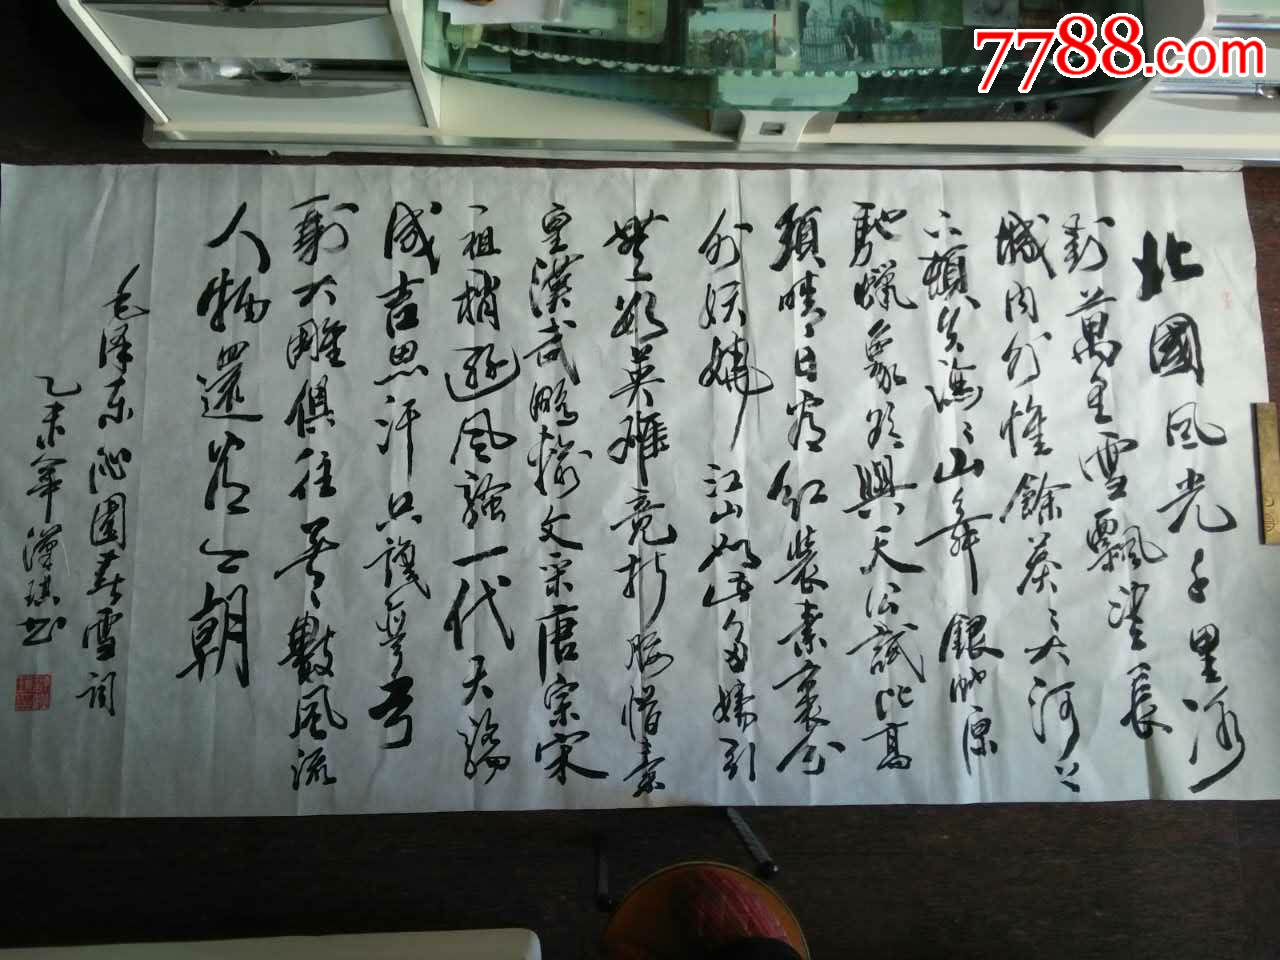 7788.com
北國風光千里冰
封萬里雪飄望長
城内外惟餘莽〻大河上
下頓失滔〻山舞銀蛇原
馳蠟象欲與天公試比高
須晴日看紅裝素裹分
外妖嬈江山如此多嬌引
無數英雄競折腰惜秦
皇漢武略輸文采唐宗宋
祖稍遜風騷一代天驕
成吉思汗只識彎弓
射大雕俱往矣數風流
人物還看今朝
毛澤东沁園春雪詞
乙未年漢琪书